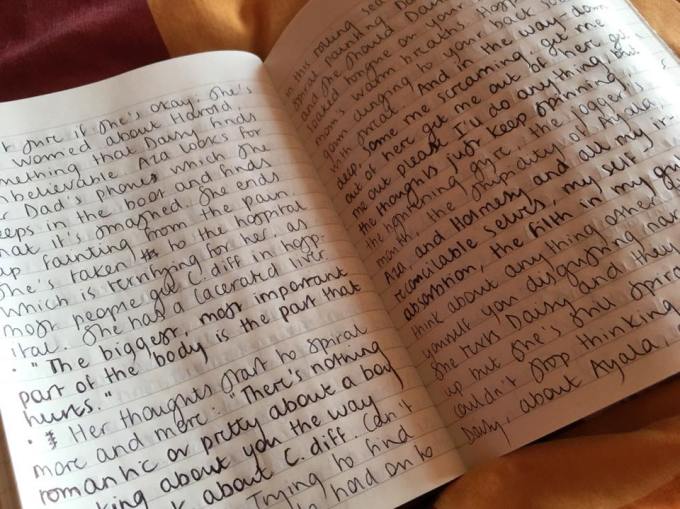 t sure if she's okay. She's
worried about Harold,
mething that Daisy finds
nbelievable. Aza looks for
r Dad's phone, which she
eeps in the boot and finds
hat it's smashed. She ends
up fainting from the pain.
She's taken to the hospital
which is terrifying for her, as
most people get C. diff in hosp-
ital. She has a lacerated liver.
• "The biggest, most important
part of the body is the part that
hurts."
• Her thoughts start to spiral
more and more: "There's nothing
romantic or pretty about a boy
king about you the way
k about C. diff. Can't
Trying to find
hold on to
in this
spiral painting
and she should
soaked tongue on your
mom's warm breath
gown clinging to your back
with sweat. And in the way down
deep, some me screaming, get me
out of here get me out of here get
me out please I'll do anything, but
the thoughts just keep spinning,
the tightening gyre, the jogger's
mouth, the stupidity of Ayala,
Aza and Holmesy and all my ir-
reconcilable selves, my self
absorption, the filth in my gut
think about anything other
yourself you disgusting nar
Daisy and they
up but she's still
couldn't stop thinking
Daisy, about Ayala,